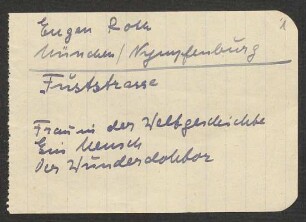 Eugen Roth
München/Nympfenburg
Fuststrasse
Frau in der Weltgeschichte
Ein Mensch
Der Wunderdoktor